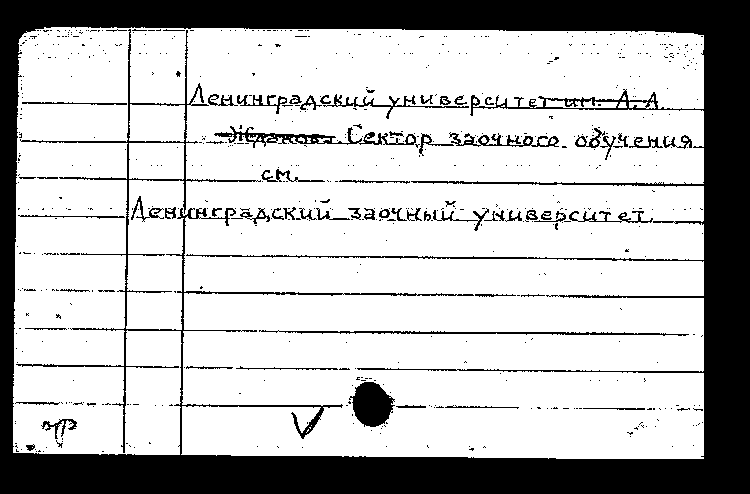 Ленинградский университет им. А.А.
Жданова. Сектор заочного обучения
см.
Ленинградский заочный университет.